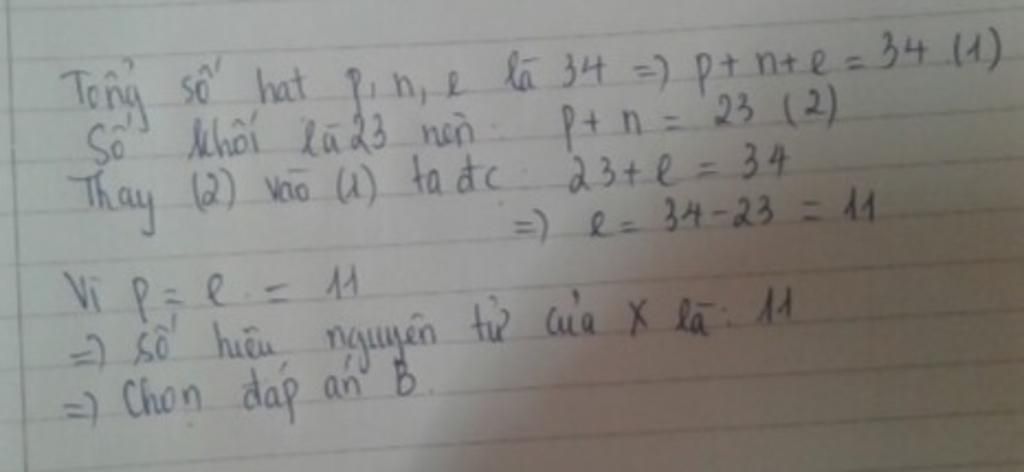 Tổng số hạt p, n, e là 34 => p + n + e = 34 (1)
Số khối là 23 nên p + n = 23 (2)
Thay (2) vào (1) ta đc 23 + e = 34
=> e = 34 - 23 = 11
Vì p = e = 11
=> số hiệu nguyên tử của X là: 11
=> Chọn đáp án B.